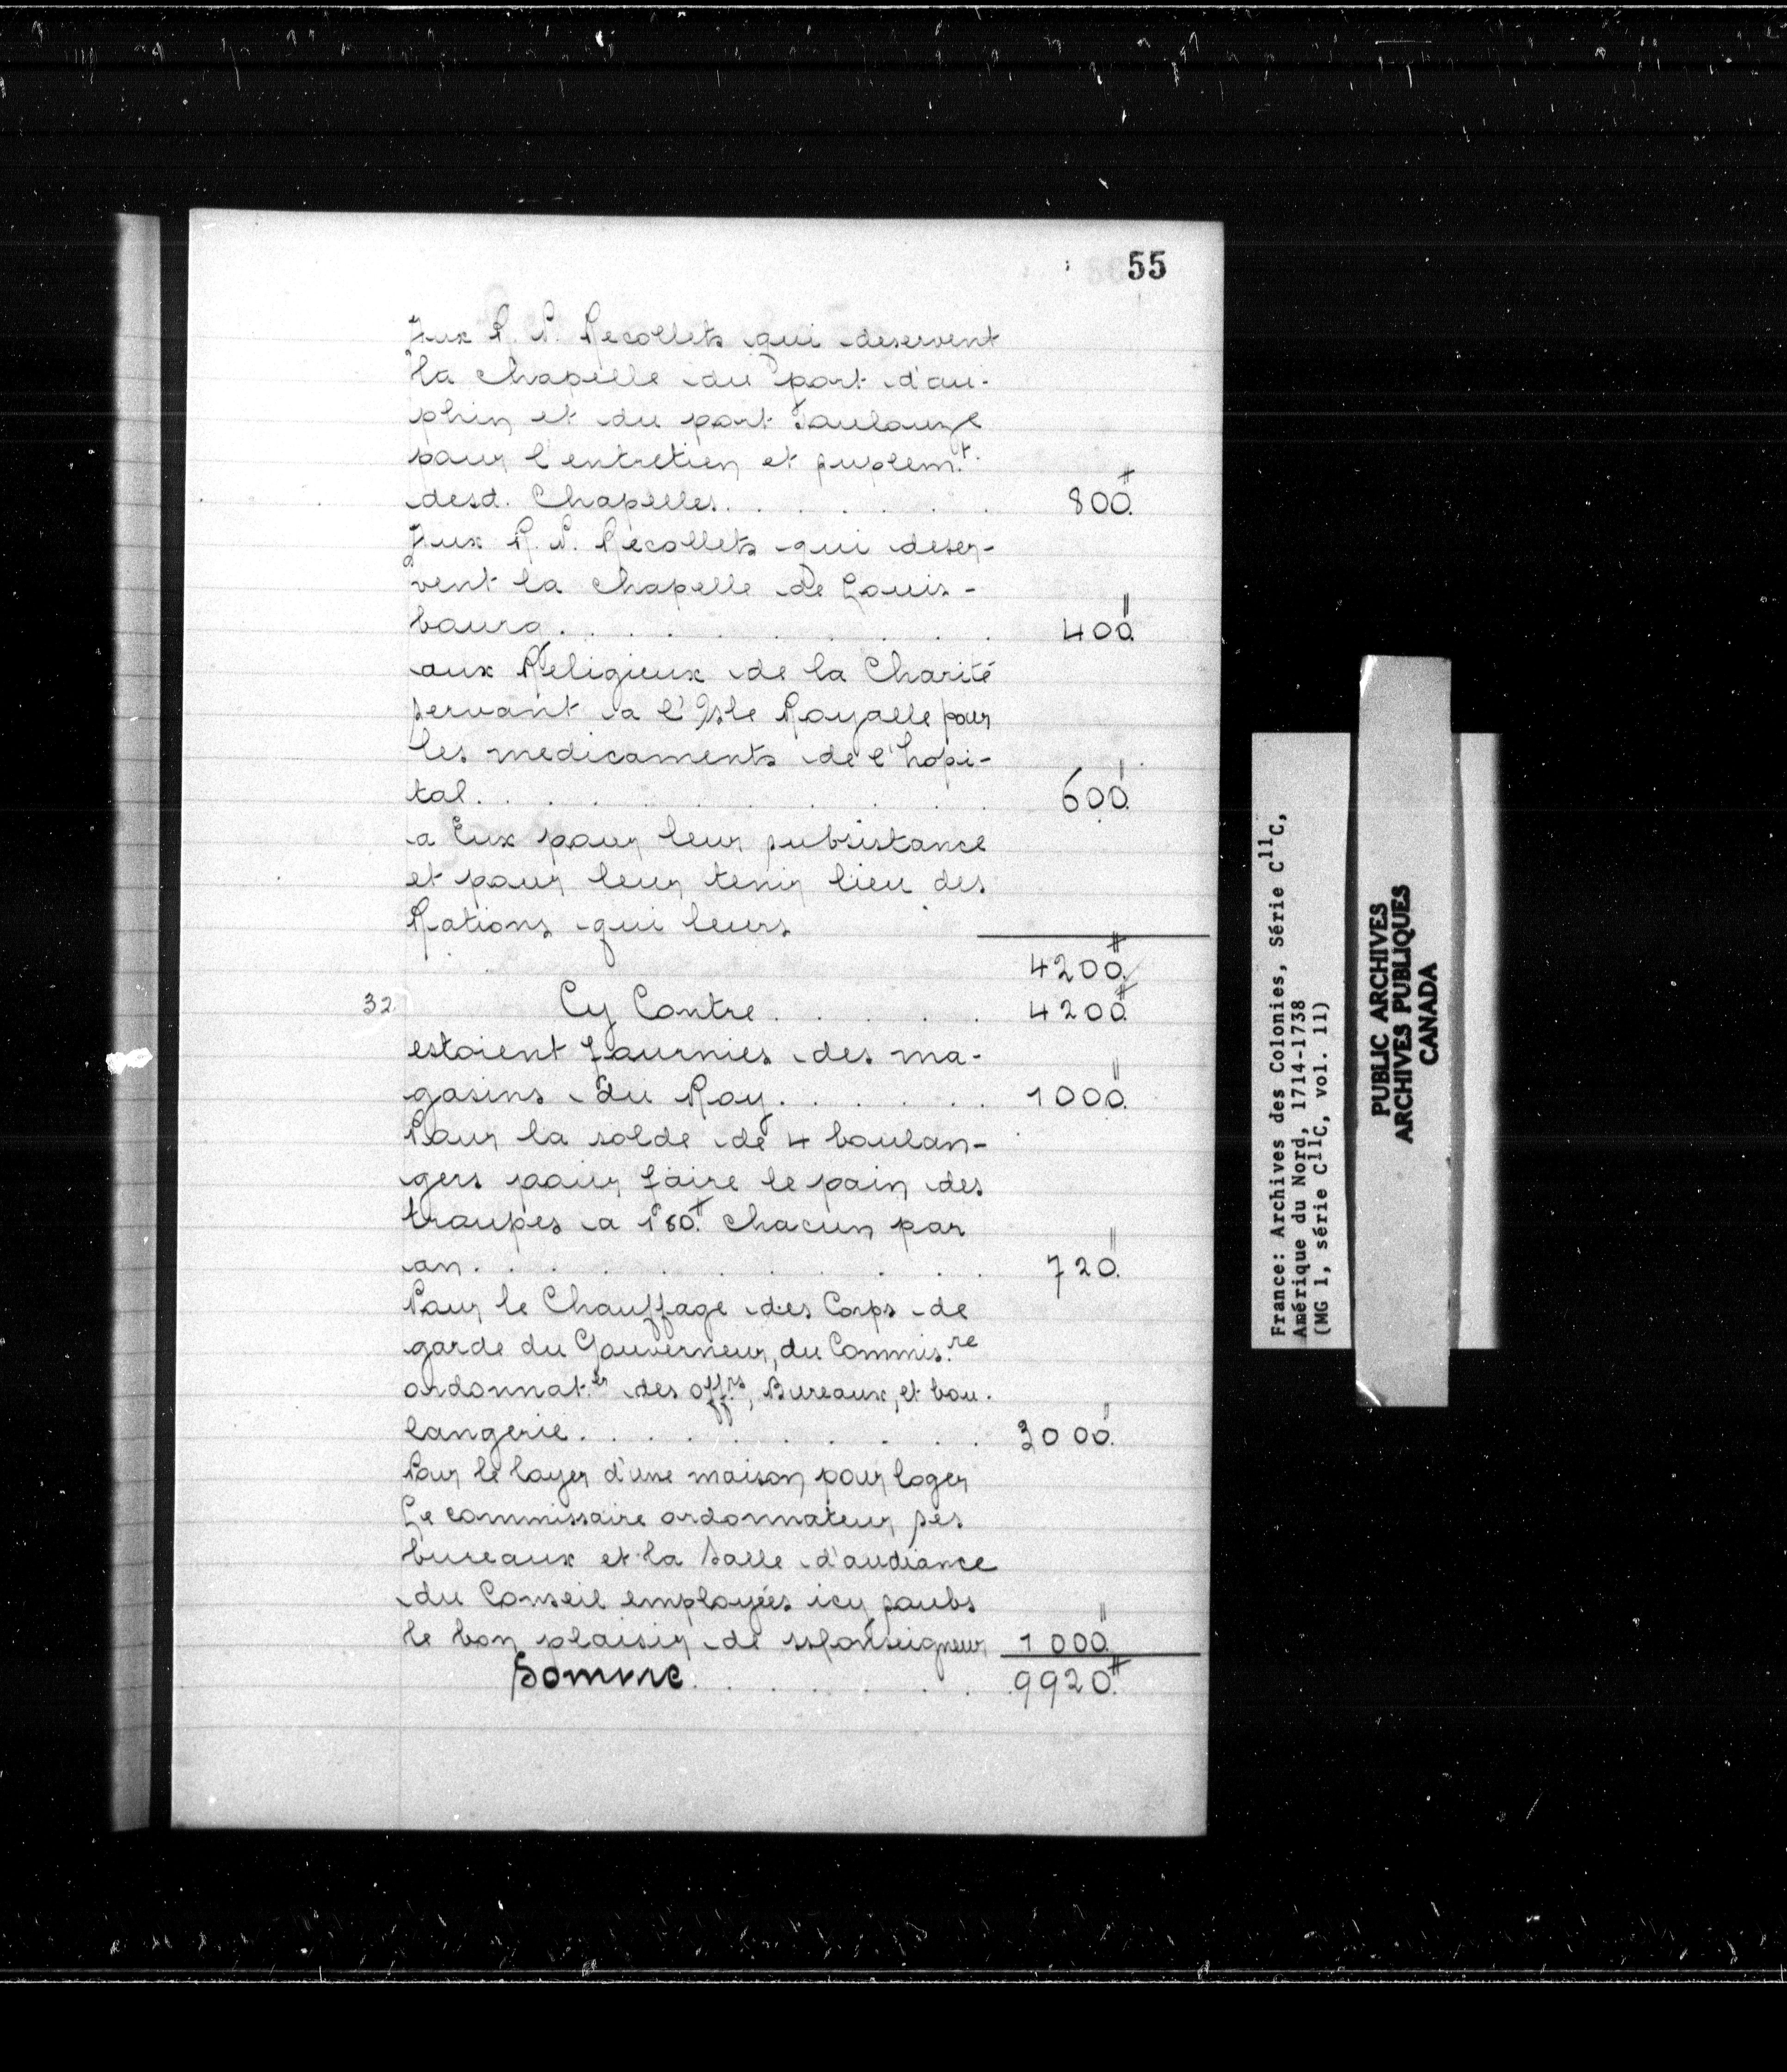 55
Aux R. P. Recollets qui deservent
la chapelle du port d'au-
phin et du port Toulouze
pour l'entretien et suplem.t
desd. Chapelles. . . . . . . 800.#
Aux R. P. Recollets qui deser-
vent la chapelle de Louis-
bourg. . . . . . . . . . . 400."
aux Religieux de la Charité
servant a l'Isle Royalle pour
les medicaments de l'hopi-
tal. . . . . . . . . . . . 600.
a Eux pour leur subsistance
et pour leur tenir lieu des
Rations qui leurs
4200.#
32. Cy Contre . . . . . . 4200.#
estoient fournies des ma-
gasins du Roy. . . . . . . 1000."
Pour la solde de 4 boulan-
gers pour faire le pain des
troupes a 180.# chacun par
an. . . . . . . . . . . . 720."
Pour le Chauffage des Corps de
garde du Gouverneur, du Commis.re
ordonnat.er des off.rs, Bureaux, et bou-
langerie. . . . . . . . . . 3000."
Pour le loyer d'une maison pour loger
Le commissaire ordonnateur ses
bureaux et la Salle d'audiance
du Conseil employées icy soubs
le bon plaisir de Monseigneur 1000."
Somme. . . . . . . . . 9920.#
France: Archives des Colonies, Série C11C,
Amérique du Nord, 1714-1738
(MG 1, série C11C, vol. 11)
PUBLIC ARCHIVES
ARCHIVES PUBLIQUES
CANADA